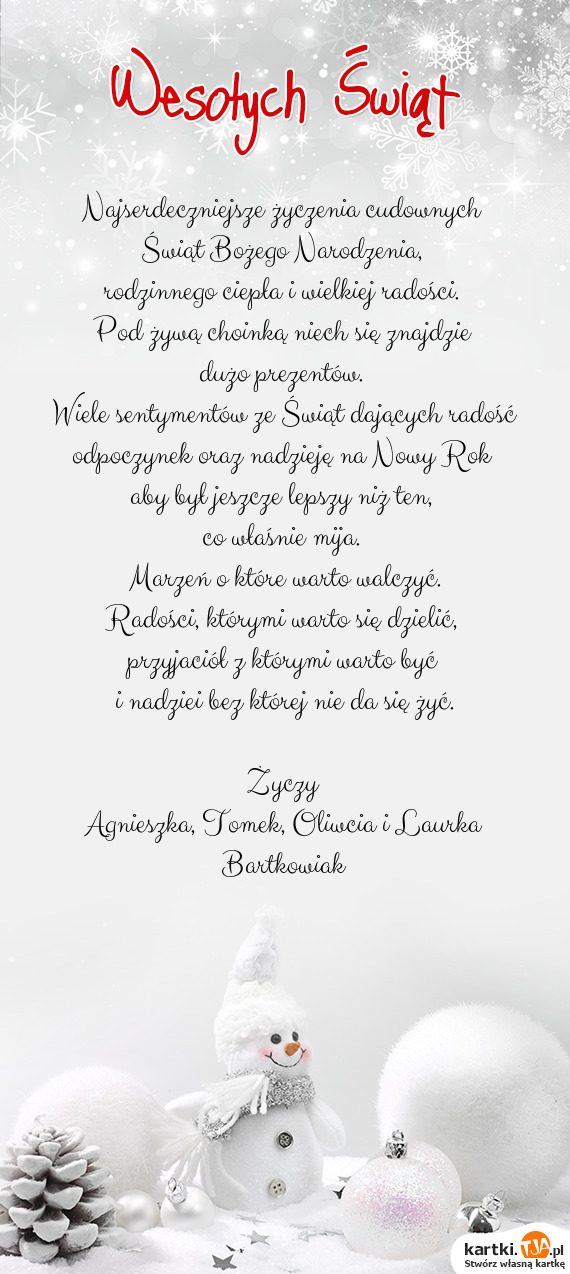 Wesołych Świąt
Najserdeczniejsze życzenia cudownych
Świąt Bożego Narodzenia,
rodzinnego ciepła i wielkiej radości.
Pod żywą choinką niech się znajdzie
dużo prezentów.
Wiele sentymentów ze Świąt dających radość
odpoczynek oraz nadzieję na Nowy Rok
aby był jeszcze lepszy niż ten,
co właśnie mija.
Marzeń o które warto walczyć.
Radości, którymi warto się dzielić,
przyjaciół z którymi warto być
i nadziei bez której nie da się żyć.
Życzy
Agnieszka, Tomek, Oliwcia i Laurka
Bartkowiak
kartki.TJA.pl
Stwórz własną kartkę